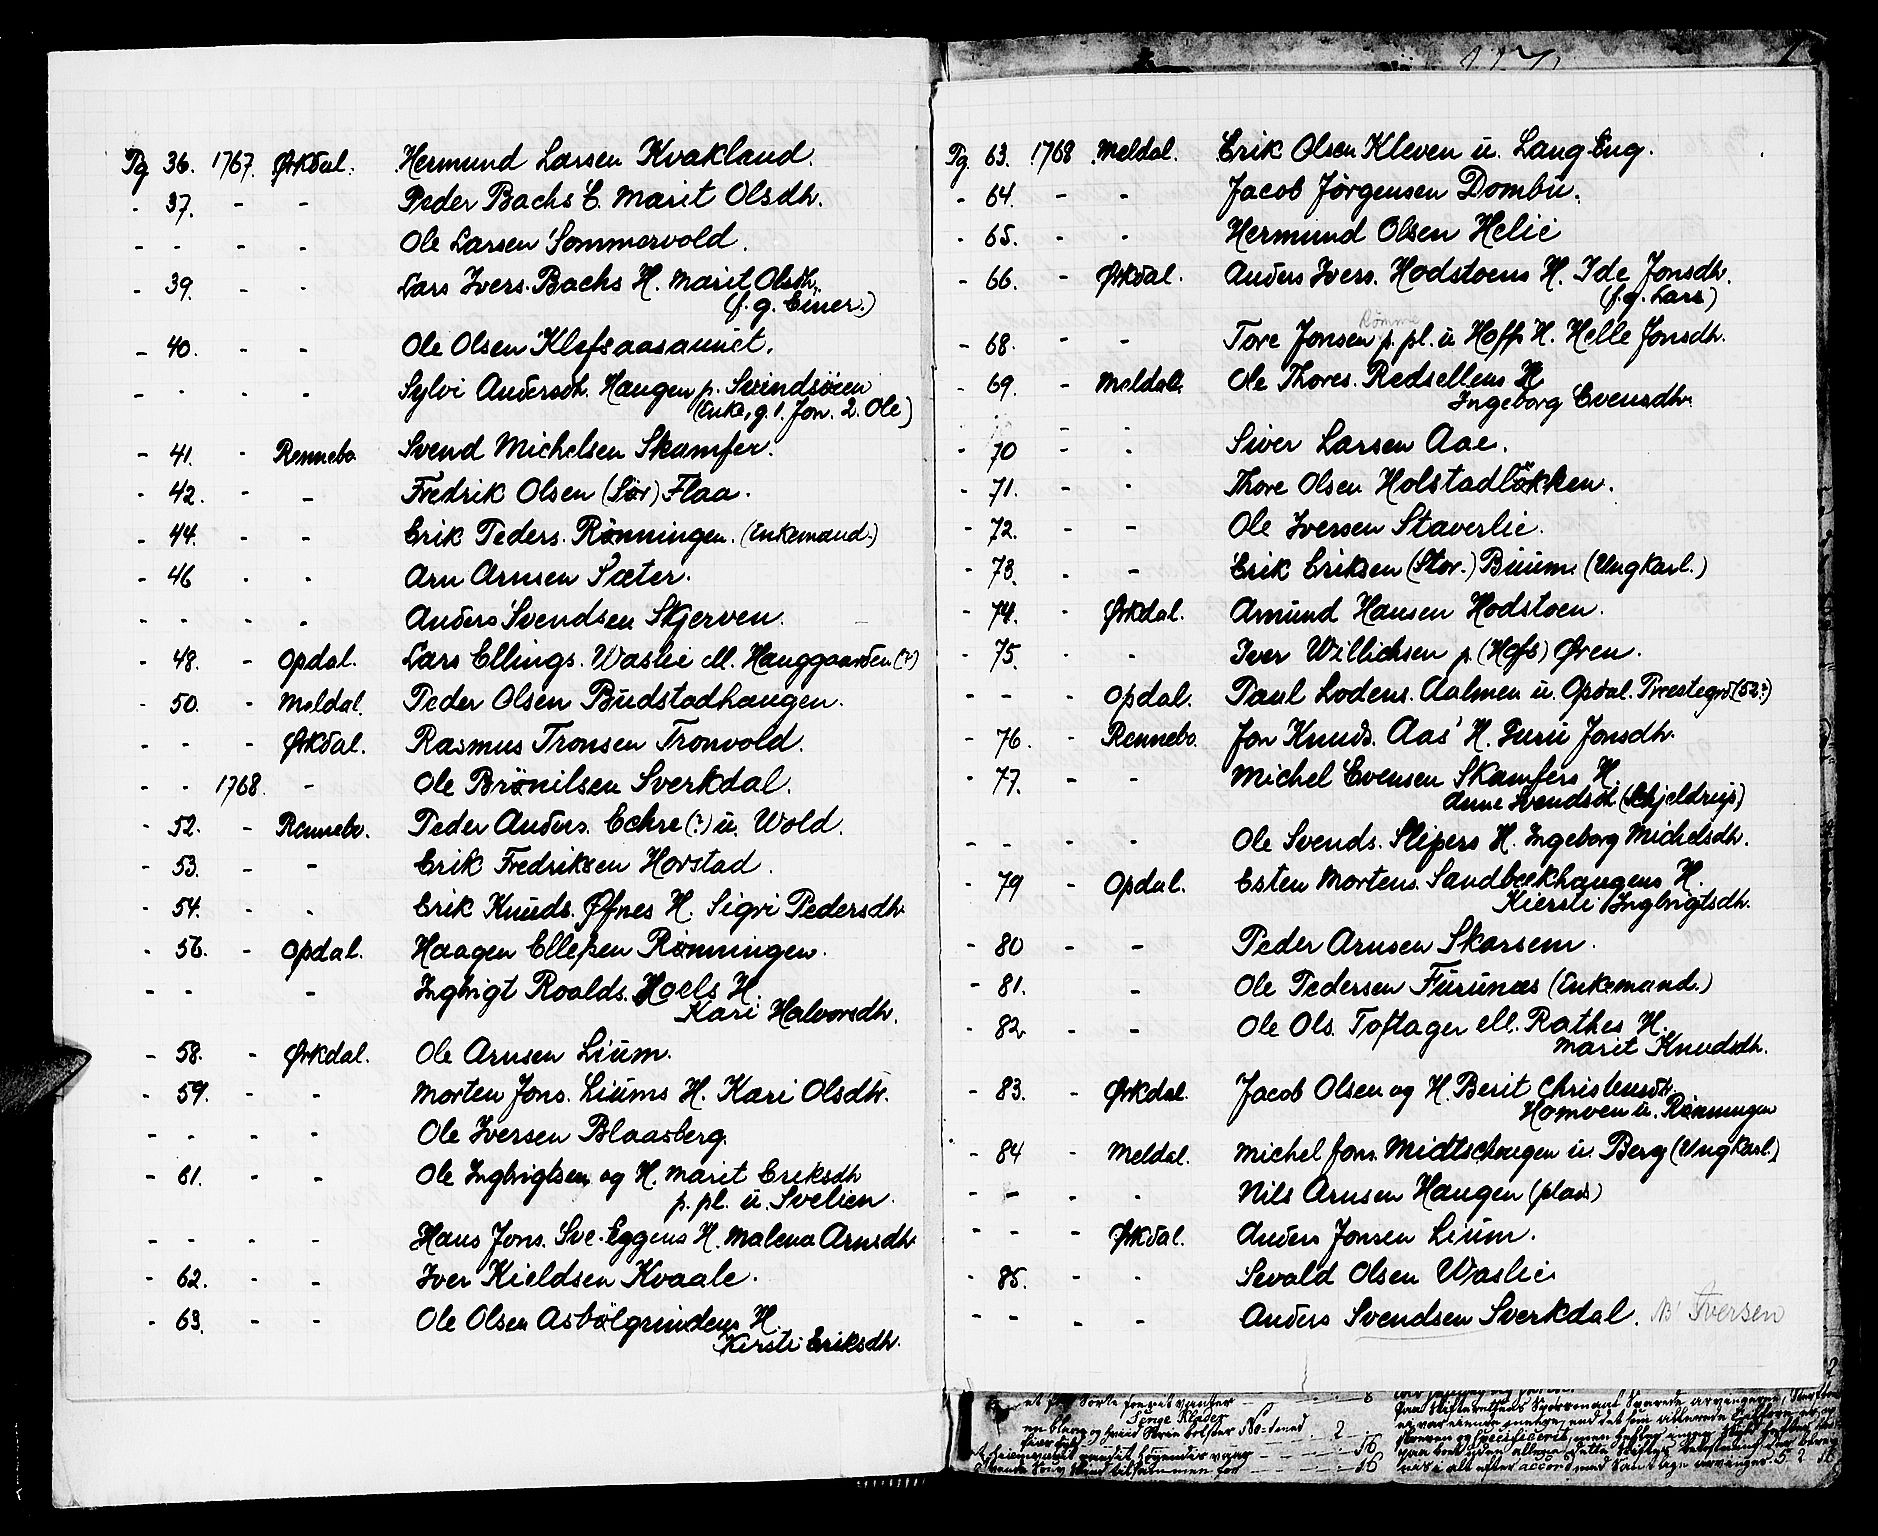 Pg 36. 1767. Ørkdal. Hermund Larsen Kvakland.
- 37. - - Peder Bachs E. Marit Olsdtr.
- - - - Ole Larsen Sommervold.
- 39. - - Lars Ivers. Bachs H. Marit Olsdtr.
(f. g. Einer.)
- 40. - - Ole Olsen Klefsaasaunet.
- - - - Sylvi Andersdtr. Haugen p. Svindsöien
(Enke, g. 1. Jon. 2. Ole)
- 41. - Rennebo Svend Michelsen Skamfer.
- 42. - - Fredrik Olsen (Sør) Flaa.
- 44. - - Erik Peders. Rønningen. (Enkemand.)
- 46 - - Arn Arnsen Sæter.
- - - - Anders Svendsen Skjerven.
- 48. - Opdal. Lars Ellings. Waslie ell. Hauggaarden (?)
- 50. - Meldal. Peder Olsen Budstadhaugen.
- - - Ørkdal. Rasmus Tronsen Tronvold.
- - 1768. - Ole Brönilsen Sverkdal.
- 52. - Rennebo. Peder Anders. Echre (?) u. Wold.
- 53. - - Erik Fredriksen Horstad.
- 54. - - Erik Knuds. Øfnes H. Sigri Pedersdtr.
- 56. - Opdal. Haagen Ellefsen Rønningen.
- - - Ingbrigt Roalds. Hoels H.
Kari Halvorsdtr.
- 58. - Ørkdal. Ole Arnsen Lium.
- 59. - - Morten Jons. Liums H. Kari Olsdtr.
- - - - Ole Iversen Blaasberg.
- 61. - - Ole Ingbrigtsen og H. Marit Eriksdtr
p. pl. u. Svelien.
- - - - Hans Jons. Sve-Eggens H. Malena Arnsdtr.
- 62. - - Iver Kieldsen Kvaale.
- 63. - - Ole Olsen Asbølgrindens H.
Kirsti Eriksdtr.
Pg. 63. 1768 Meldal. Erik Olsen Kleven u. Lang Eng.
- 64. - - Jacob Jørgensen Dombu.
- 65. - - Hermund Olsen Helie
- 66. - Ørkdal. Anders Ivers. Hodstoens H. Ide Jonsdtr.
(f. g. Lars)
Rømme
- 68. - - Tore Jonsen p. pl. u Hoff H. Helle Jonsdtr.
- 69. - Meldal. Ole Thores. Redsellens H
Ingeborg Evensdtr.
- 70 - - Siver Larsen Aae.
- 71. - - Thore Olsen Holstadløkken.
- 72. - - Ole Iversen Staverlie.
- 73. - - Erik Eriksen (Stor-) Buum. (Ungkarl.)
- 74. - Ørkdal. Amund Hansen Hodstoen.
- 75. - - Iver Willichsen p. (Hofs) Øren.
- - - Opdal. Paul Lodens. Aalmen u. Opdal. Prestegrd (52?)
- 76. - Rennebo. Jon Knuds. Aas' H. Guru Jonsdtr.
- 77. - - Michel Evensen Skamfers H.
Anne Svendsdt
- - - - Ole Svends. Slipers H. Ingeborg Michelsdtr.
- 79 - Opdal. Esten Mortens. Sandbækhaugens H.
Kiersti Ingbrigtsdtr.
- 80 - - Peder Arnsen Skarsem.
- 81. - Ole Pedersen Furunæs (Enkemand.)
- 82 - - Ole Ols. Toftager ell. Rathes H.
Marit Knudsdtr.
- 83. - Ørkdal. Jacob Olsen og H. Berit Christensdtr.
Homven u. Rønningen
- 84 - Meldal. Michel Jons. Midtschougen u. Berg (Ungkarl.)
- - - - Nils Arnsen Haugen (plads)
- - - Ørkdal. Anders Jonsen Lium.
- 85. - - Sevald Olsen Waslie
- - - - Anders Svendsen Sverkdal. NB Iversen